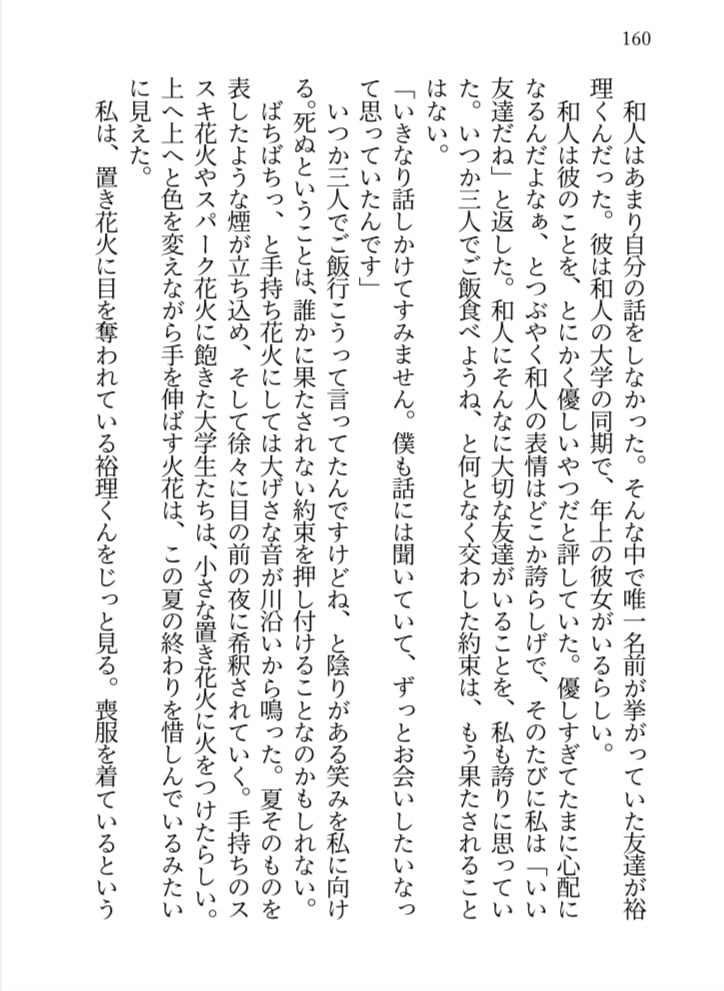 160
　和人はあまり自分の話をしなかった。そんな中で唯一名前が挙がっていた友達が裕
理くんだった。彼は和人の大学の同期で、年上の彼女がいるらしい。
　和人は彼のことを、とにかく優しいやつだと評していた。優しすぎてたまに心配に
なるんだよなぁ、とつぶやく和人の表情はどこか誇らしげで、そのたびに私は「いい
友達だね」と返した。和人にそんなに大切な友達がいることを、私も誇りに思ってい
た。いつか三人でご飯食べようね、と何となく交わした約束は、もう果たされること
はない。
「いきなり話しかけてすみません。僕も話には聞いていて、ずっとお会いしたいなっ
て思っていたんです」
　いつか三人でご飯行こうって言ってたんですけどね、と陰りがある笑みを私に向け
る。死ぬということは、誰かに果たされない約束を押し付けることなのかもしれない。
　ばちばちっ、と手持ち花火にしては大げさな音が川沿いから鳴った。夏そのものを
表したような煙が立ち込め、そして徐々に目の前の夜に希釈されていく。手持ちのス
スキ花火やスパーク花火に飽きた大学生たちは、小さな置き花火に火をつけたらしい。
上へ上へと色を変えながら手を伸ばす火花は、この夏の終わりを惜しんでいるみたい
に見えた。
　私は、置き花火に目を奪われている裕理くんをじっと見る。喪服を着ているという